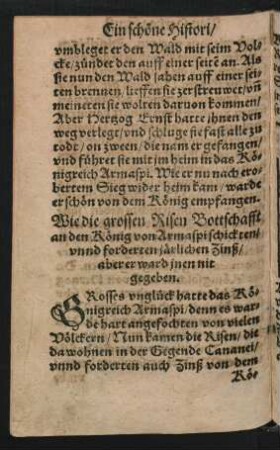 Ein schöne Histori/
vmbleget er den Wald mit seim Vol⸗
cke/ zündet den auff einer seitē an. Als
sie nun den Wald sahen auff einer sei⸗
ten brennen/ lieffen sie zerstrewet/ vñ
meineten sie wolten daruon kommen/
Aber Hertzog Ernst hatte ihnen den
weg verlegt/ vnd schluge sie fast alle zu
todt/ on zween/ die nam er gefangen/
vnd führet sie mit jm heim in das Kö⸗
nigreich Armaspi. Wie er nu nach ero⸗
bertem Sieg wider heim kam/ warde
er schön von dem König empfangen.
Wie die grossen Risen Bottschafft
an den König von Armaspi schickten/
vnnd forderten järlichen Zinß/
aber er ward jnen nit
gegeben.
GRosses vnglück hatte das Kö⸗
nigreich Armaspi/ denn es war⸗
de hart angefochten von vielen
Völckern/ Nun kamen die Risen/ die
da wohnen in der Gegende Cananei/
vnnd forderten auch Zinß von dem
Kö⸗